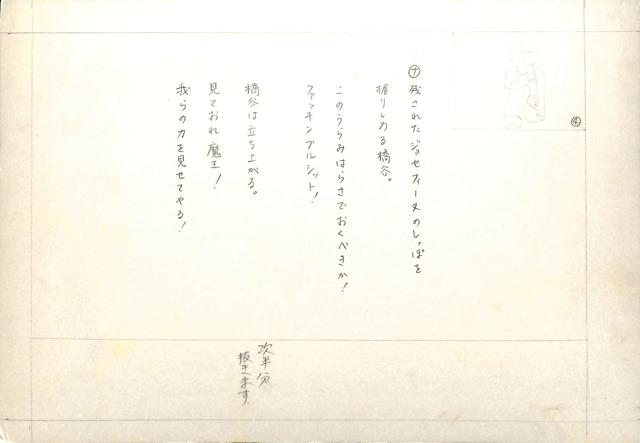 ⑦ 残されたジョセフィーヌのしっぽを
握りしめる橋谷。
このうらみはらさでおくべきか!
ファッキンブルシット!
橋谷は立ち上がる。
見ておれ魔王!
我らの力を見せてやる!
次半分
抜きます
④